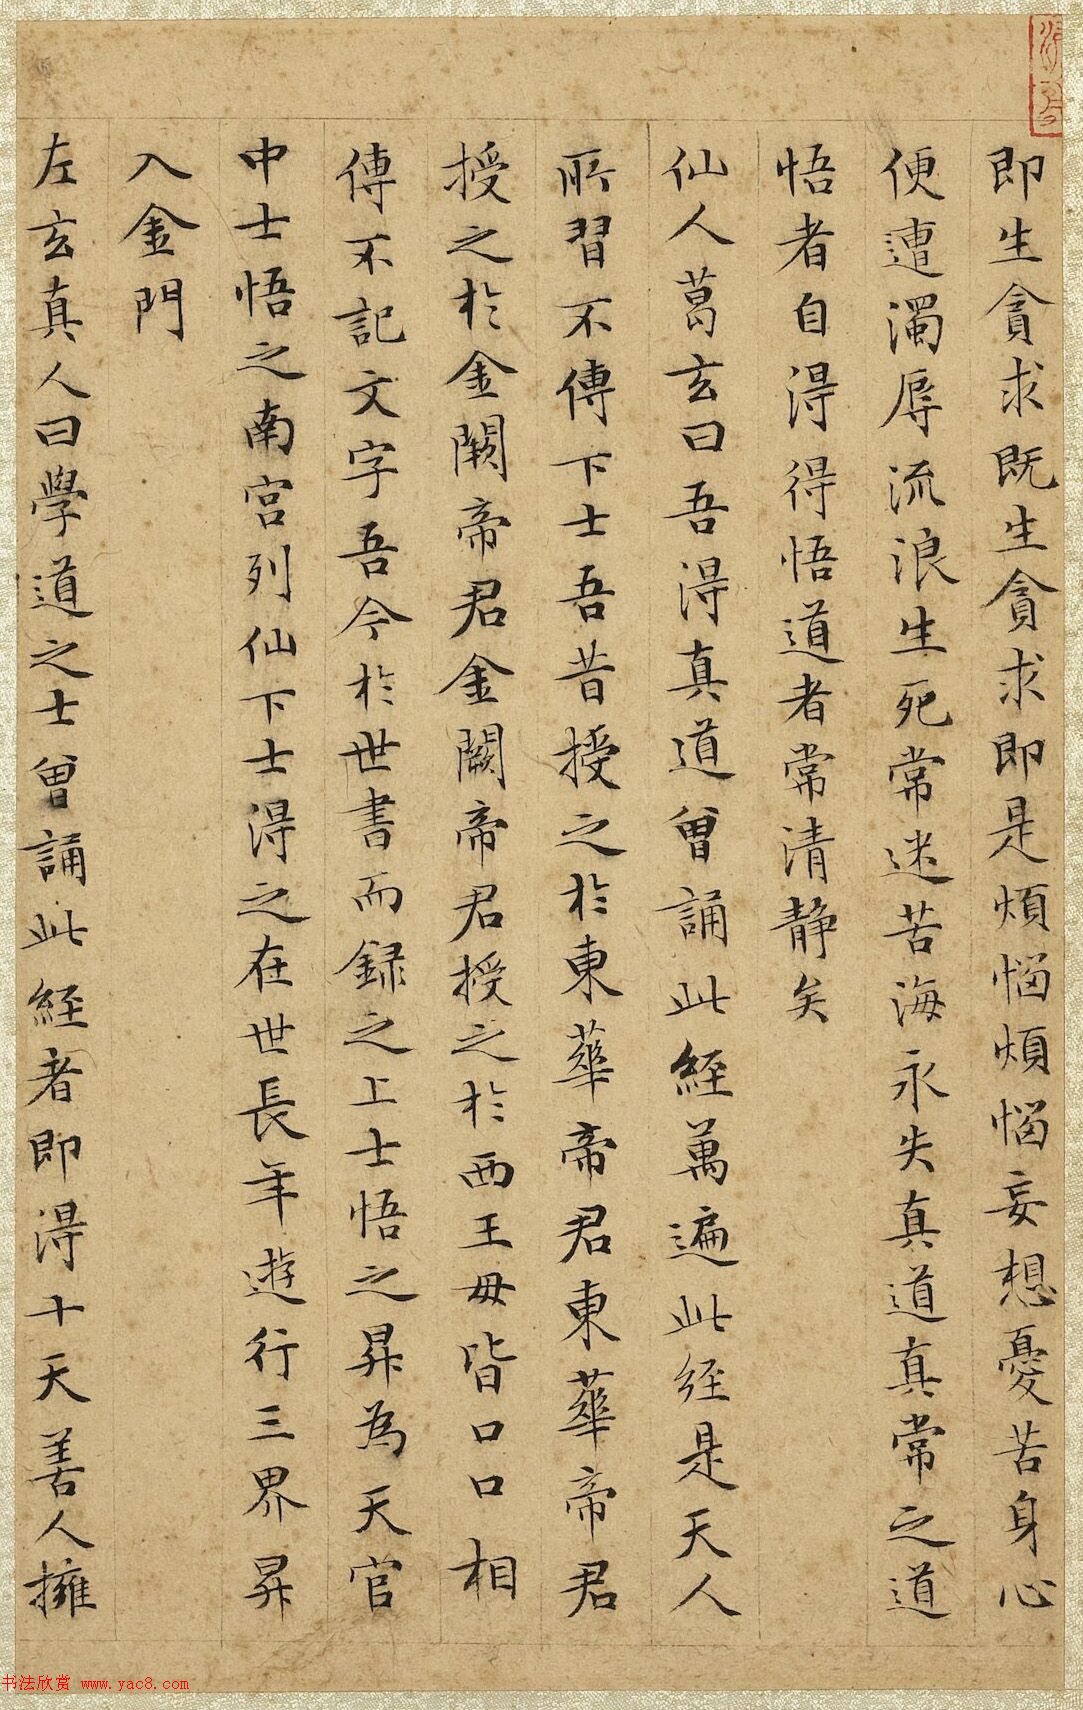 即生貪求既生貪求即是煩惱煩惱妄想憂苦身心
便遭濁辱流浪生死常迷苦海永失真道真常之道
悟者自得得悟道者常清靜矣
仙人葛玄曰吾得真道曾誦此經萬遍此經是天人
所習不傳下士吾昔授之於東華帝君東華帝君
授之於金闕帝君金闕帝君授之於西王母皆口口相
傳不記文字吾今於世書而録之上士悟之昇為天官
中士悟之南宮列仙下士得之在世長年遊行三界昇
入金門
左玄真人曰學道之士曾誦此經者即得十天善人擁
书法欣赏 www.yac8.com